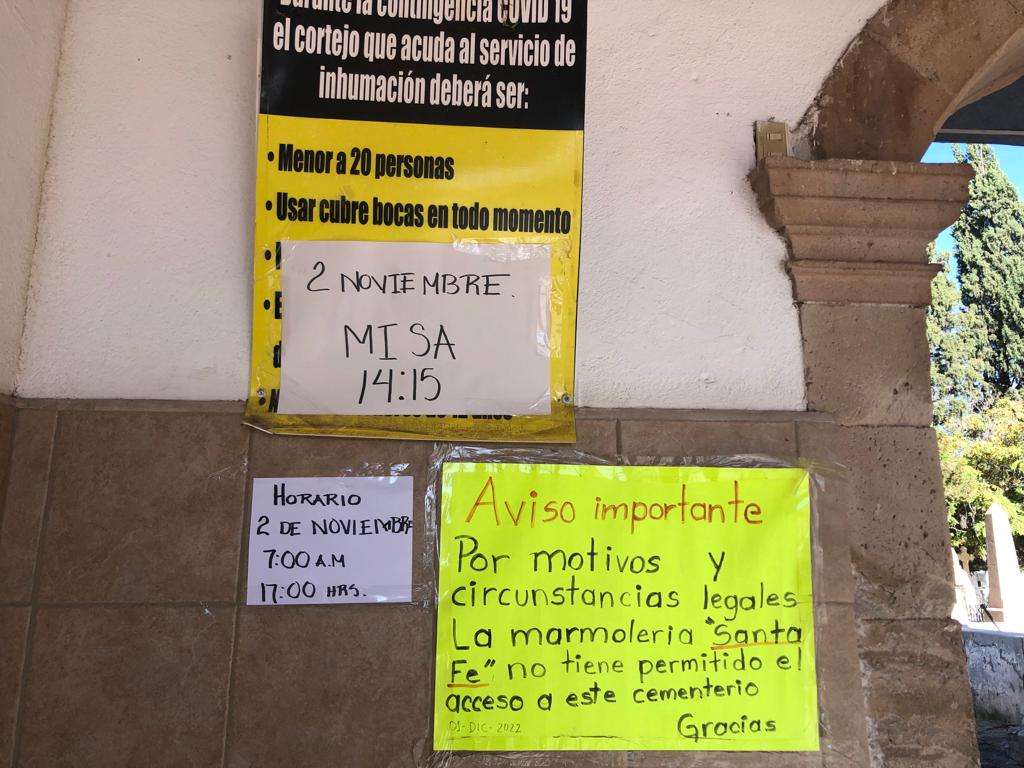 Durante la contingencia COVID 19
el cortejo que acuda al servicio de
inhumación deberá ser:
• Menor a 20 personas
• Usar cubre bocas en todo momento
2 NOVIEMBRE.
MISA
14:15
HORARIO
2 DE NOVIEMBRE
7:00 A.M
17:00 HRS.
Aviso importante
Por motivos y
circunstancias legales
La marmoleria "Santa
Fe" no tiene permitido el
acceso a este cementerio
Gracias
05-DIC-2022